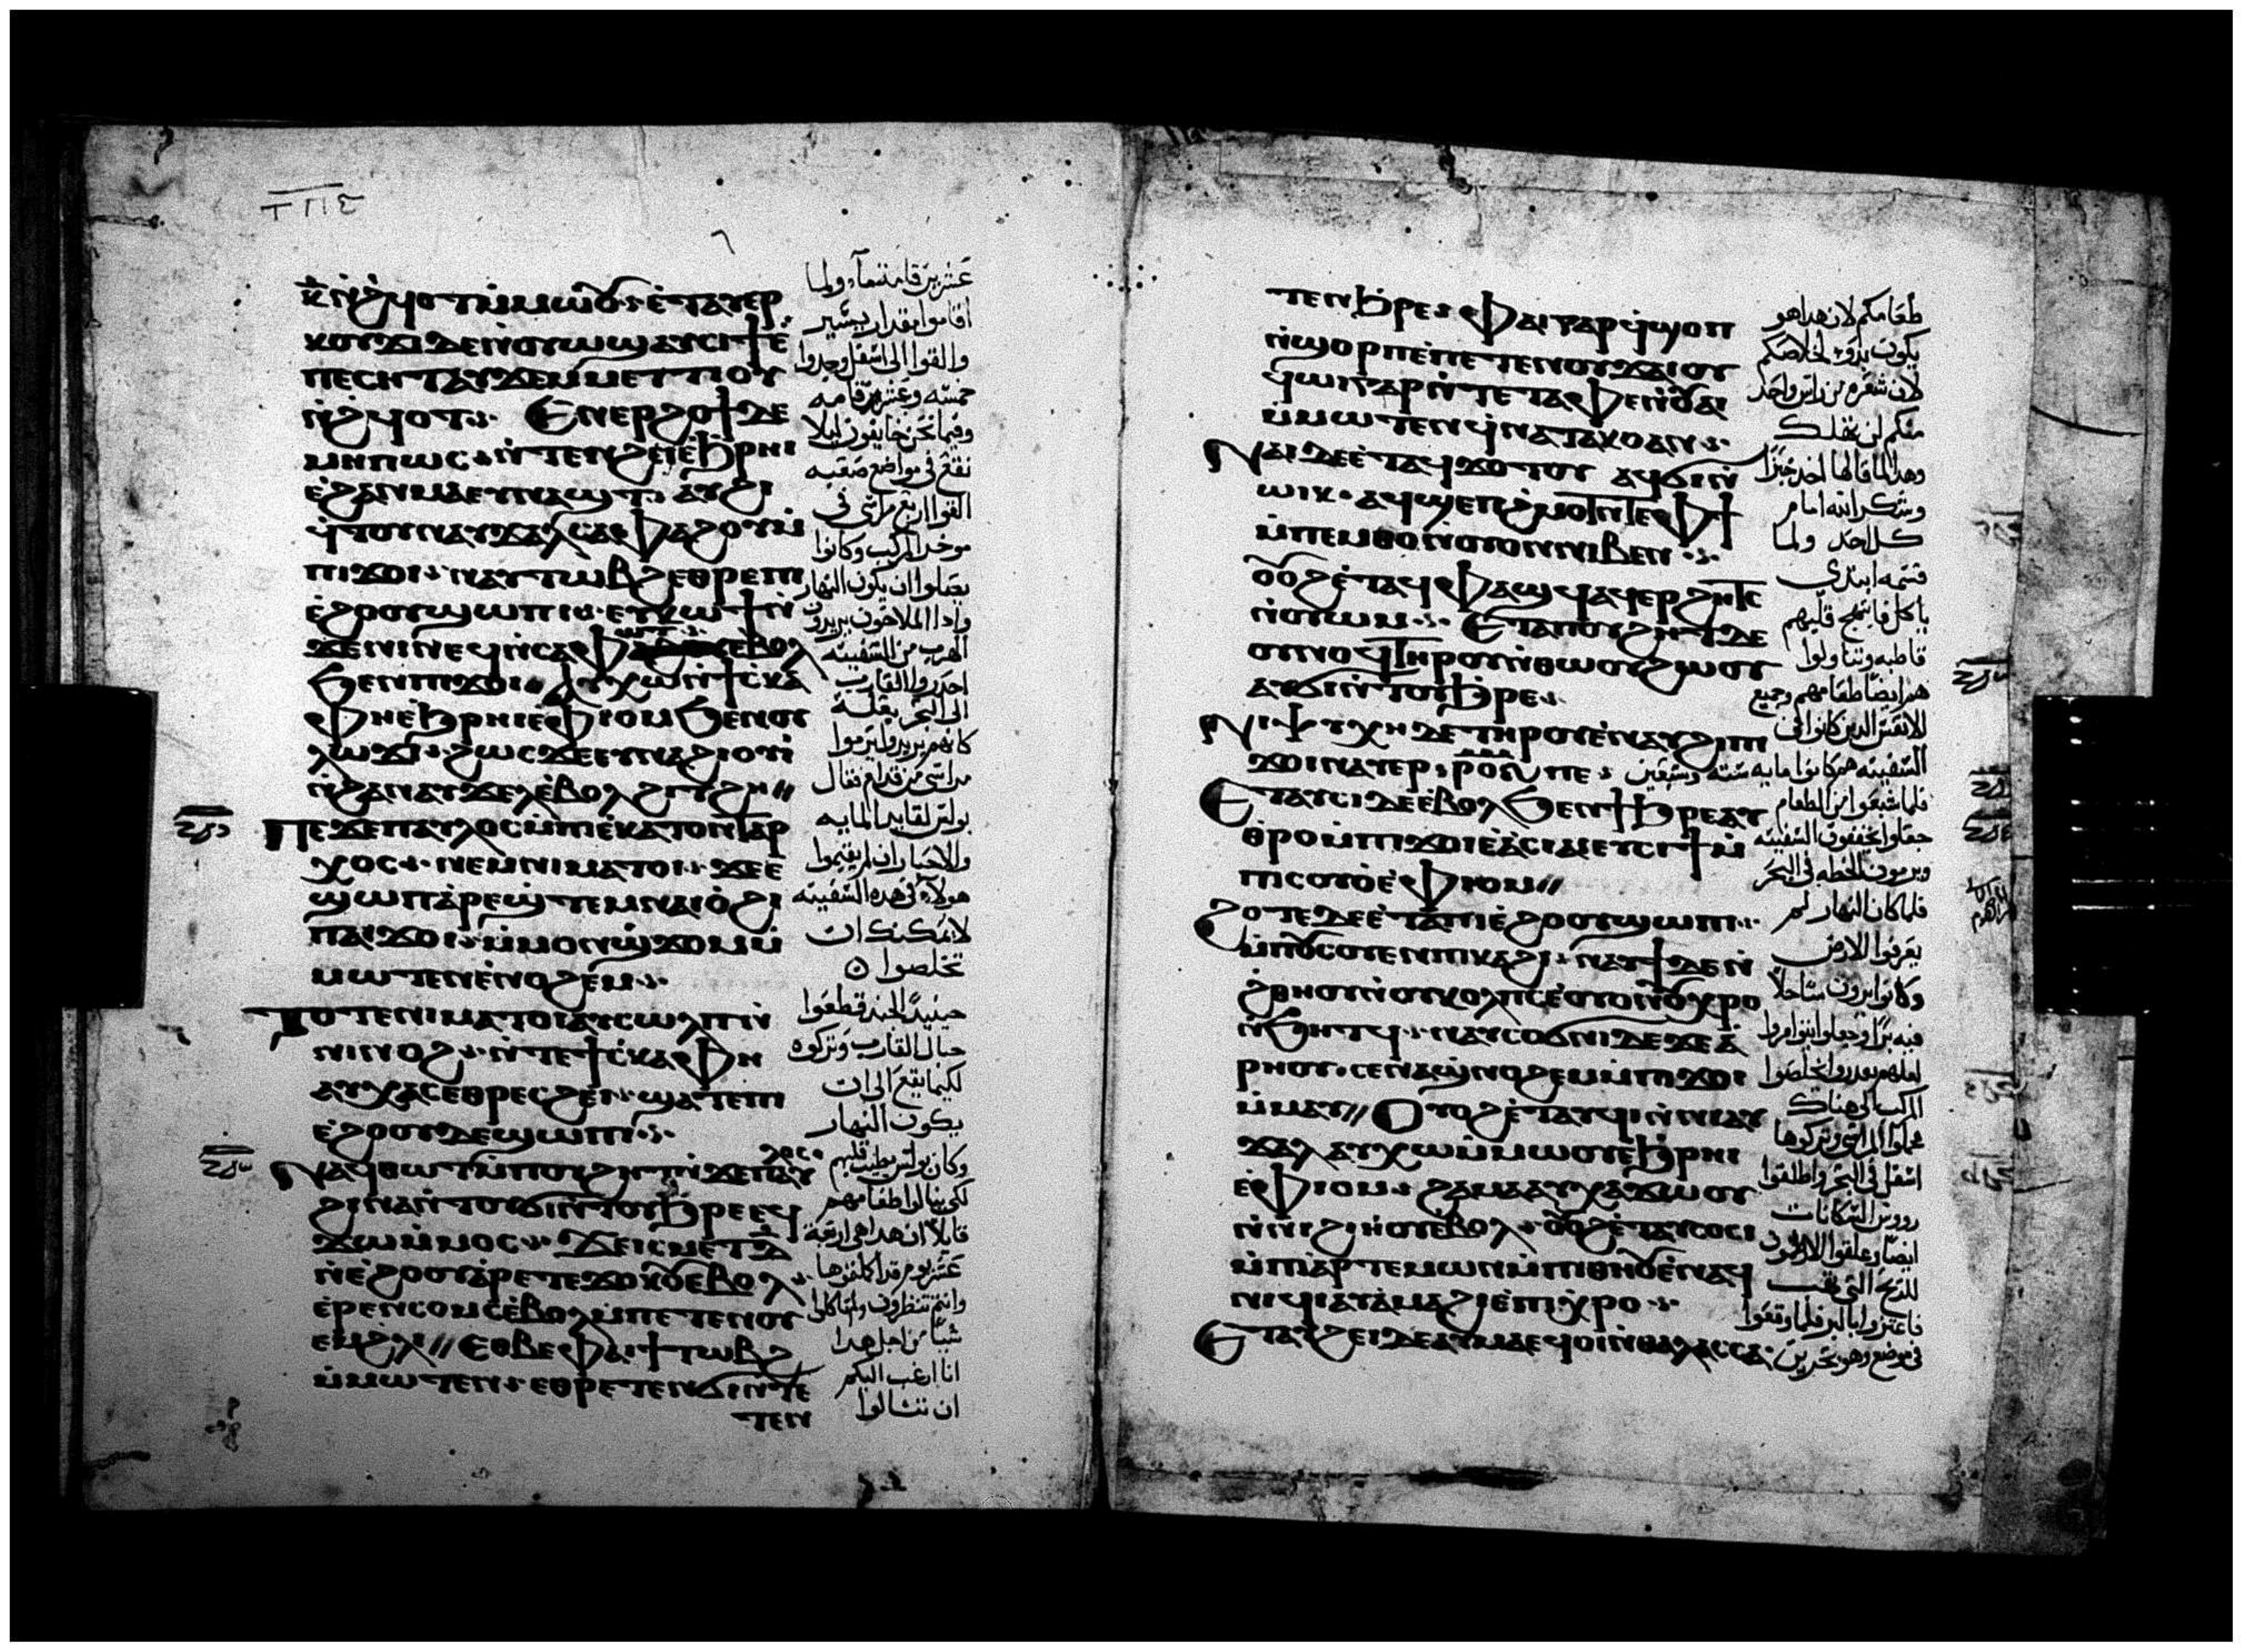 ⲕ̅ ⲛ̀ϩϥⲟⲧ ⲙ̀ⲙⲱⲟⲩ ⲉ̀ⲧⲁⲩⲉⲣ
ⲕⲟⲩϫⲓ ⲇⲉ ⲛ̀ⲟⲩⲱϣ ⲁⲩⲥⲓϯ ⲉ̀
ⲡⲉⲥⲏⲧ ⲁⲩϫⲉⲙ ⲙⲉⲧⲧⲓⲟⲩ
ⲛ̀ϩϥⲟⲧ Ⲉⲛⲉⲣϩⲟϯ ⲇⲉ
ⲙⲏⲡⲱⲥ ⲛ̀ⲧⲉⲛϩⲉⲓ ⲉ̀ϧⲣⲏⲓ
ⲉ̀ϩⲁⲛⲙⲁ ⲉⲩⲛⲁϣⲧ ⲁⲩϩⲓ
ϥ̀ⲧⲟⲩ ⲛⲁⲩϫⲁⲗ ⲥⲁⲫⲁϩⲟⲩ ⲙ̀
ⲡⲓϫⲟⲓ ⲛⲁⲩⲧⲱⲃϩ ⲉⲑⲣⲉ ⲡⲓ
ⲉ̀ϩⲟⲟⲩ ϣⲱⲡⲓ ⲉⲩⲕⲱϯ ⲛ̀
ϫⲉ ⲛⲓⲛⲉϥ ⲛ̀ⲥⲁ ⲫⲱⲧ ⲉⲃⲟⲗ
ϧⲉⲛ ⲡⲓϫⲟⲓ ⲁⲩⲭⲱ ⲛ̀ϯⲥⲕⲁ
ⲫⲏ ⲉϧⲣⲏⲓ ⲉⲫⲓⲟⲙ ϧⲉⲛ ⲟⲩ
ⲗⲱϫⲓ ϩⲱⲥ ϫⲉ ⲉⲩⲛⲁϩⲓⲟⲩⲓ̀
ⲛ̀ϩⲁⲛⲁⲩϫⲉⲗ ⲉ̀ⲃⲟⲗ ϩⲓⲧϩⲏ
Ⲡⲉϫⲉ ⲡⲁⲩⲗⲟⲥ ⲙ̀ⲡⲓⲉⲕⲁⲧⲟⲛⲧⲁⲣ
ⲭⲟⲥ ⲛⲉⲙ ⲛⲓⲙⲁⲧⲟⲓ ϫⲉ ⲉ
ϣⲱⲡ ⲁ̀ⲣⲉϣⲧⲉⲙ ⲛⲁⲓ ⲟ̀ϩⲓ
ⲡⲁⲓϫⲟⲓ ⲙ̀ⲙⲟⲛ ϣϫⲟⲙ ⲙ̀
ⲙⲱⲧⲉⲛ ⲉ̀ⲛⲟϩⲉⲙ
Ⲧⲟⲧⲉ ⲛⲓⲙⲁⲧⲟⲓ ⲁⲩⲥⲱⲗⲡ ⲛ̀
ⲛⲓⲛⲟϩ ⲛ̀ⲧⲉ ϯⲥⲕⲁⲫⲏ
ⲁⲩⲭⲁⲥ ⲉⲑⲣⲉⲥϩⲉⲓ ϣⲁⲧⲉ ⲡⲓ
ⲉ̀ϩⲟⲟⲩ ⲇⲉ ϣⲱⲡⲓ
ⲗⲟⲥ
Ⲛⲁϥⲑⲱⲧ ⲙ̀ⲡⲟⲩϩⲏⲧ ⲡⲉ ⲛ̀ϫⲉ ⲡⲁⲩ
ϩⲓⲛⲁ ⲛ̀ⲧⲟⲩϭⲓ ⲛ̀ⲧⲟⲩϧⲣⲉ ⲉϥ
ϫⲱ ⲙ̀ⲙⲟⲥ ϫⲉ ⲓⲥ ⲙⲉⲧ ⲇ̅
ⲛ̀ⲉ̀ϩⲟⲟⲩ ⲁ̀ⲣⲉⲧⲉⲛϫⲟⲕⲟⲩ ⲉⲃⲟⲗ
ⲉ̀ⲣⲉⲧⲉⲛⲥⲟⲙⲥ ⲉ̀ⲃⲟⲗ ⲙ̀ⲡⲉⲧⲉⲛⲟⲩ
ⲉⲙ ϩⲗⲓ Ⲉⲑⲃⲉ ⲫⲁⲓ ϯⲧⲱⲃϩ
ⲙ̀ⲙⲱⲧⲉⲛ ⲉⲑⲣⲉⲧⲉⲛϭⲓ ⲛ̀ⲧⲉ
ⲧⲉⲛ
عشرين قامة ماء ولما
اقاموا مقدار يسير
والقوا الى اسفل وجدوا
خمسه وعشر قامه
وفيما نحن خايفون ليلا
نقع في مواضع صعبه
القوا اربع مراسي في
موخر المركب وكانوا
يصلوا ان يكون النهار
واذا الملاحون يريدون
الهرب من السفينه
احدروا القارب
الى البحر بعلة
كانهم يريدوا يرموا
مراسي من قدام فقال
بولس لقايد المايه
والاجناد ان لم يقيموا
هولاء في هذه السفينه
لا يمكنكم ان
تخلصوا
حينيد الجند قطعوا
حبال القارب وتركوه
لكيما يقع الى ان
يكون النهار
وكان بولس يطيب قلبهم
لكي ينالوا طعامهم
قايلا ان هدا هي اربعة
عشر يوم قد اكملتموها
وانتم تنتظرون ولم تاكلوا
شيا من اجل هدا
انا ارغب اليكم
ان تنالوا
ⲧⲉⲛϧⲣⲉ ⲫⲁⲓ ⲅⲁⲣ ϥϣⲟⲡ
ⲛ̀ϣⲟⲣⲡ ⲡⲉ ⲡⲉⲧⲉⲛⲟⲩϫⲁⲓ ⲟⲩ
ϥⲱⲓ ⲅⲁⲣ ⲛ̀ⲧⲉ ⲧⲁⲫⲉ ⲛ̀ⲟⲩⲁⲓ
ⲙ̀ⲙⲱⲧⲉⲛ ϥⲛⲁⲧⲁⲕⲟ ⲁⲛ
Ⲛⲁⲓ ⲇⲉ ⲉ̀ⲧⲁϥϫⲟⲧⲟⲩ ⲁϥϭⲓ ⲛ̀
ⲱⲓⲕ ⲁϥϣⲉⲡϩⲙⲟⲧ ⲛ̀ⲧⲉ ⲫϯ
ⲙ̀ⲡⲉⲙⲑⲟ ⲛ̀ⲟⲩⲟⲛ ⲛⲓⲃⲉⲛ
ⲟⲩⲟϩ ⲉ̀ⲧⲁϥⲫⲁϣϥ ⲁϥⲉⲣϩⲏⲧⲥ
ⲛ̀ⲟⲩⲱⲙ Ⲉⲧⲁ ⲡⲟⲩϩⲏⲧ ⲇⲉ
ⲟⲩⲛⲟϥ ⲧⲏⲣⲟⲩ ⲛ̀ⲑⲱⲟⲩ ϩⲱⲟⲩ
ⲁⲩϭⲓ ⲛ̀ⲧⲟⲩϧⲣⲉ
Ⲛⲓⲯⲩⲭⲏ ⲇⲉ ⲧⲏⲣⲟⲩ ⲉ̀ⲛⲁⲩϩⲓ ⲡⲓ
ϫⲟⲓ ⲛⲁⲩⲉⲣ ⲣⲟⲋ ⲡⲉ
Ⲉⲧⲁⲩⲥⲓ ⲇⲉ ⲉ̀ⲃⲟⲗ ϧⲉⲛ ϯϧⲣⲉ ⲁⲩ
ⲑⲣⲟ ⲙ̀ⲡⲓϫⲟⲓ ⲉ̀ⲁ̀ⲥⲓⲁⲓ ⲉⲩⲥⲓϯ ⲙ̀
ⲡⲓⲥⲟⲩⲟ ⲉ̀ⲫⲓⲟⲙ
Ϩⲟⲧⲉ ⲇⲉ ⲉ̀ⲧⲁ ⲡⲓⲉ̀ϩⲟⲟⲩ ϣⲱⲡⲓ
ⲙ̀ⲡⲟⲩⲥⲟⲩⲉⲛ ⲡⲓⲕⲁϩⲓ ⲛⲁⲩϯ ⲇⲉ ⲛ̀
ϩⲑⲏⲟⲩ ⲛ̀ⲟⲩⲕⲟⲗⲡⲟⲥ ⲉ̀ⲟⲩⲟⲛ ⲟⲩⲭⲣⲟ
ⲛ̀ϧⲏⲧϥ ⲛⲁⲩⲥⲟϭⲛⲓ ⲇⲉ ϫⲉ ⲁ̀
ⲣⲏⲟⲩ ⲥⲉⲛⲁϣⲛⲟϩⲉⲙ ⲙ̀ⲡⲓϫⲟⲓ
ⲙ̀ⲙⲁⲩ Ⲟⲩⲟϩ ⲉ̀ⲧⲁⲩϥⲓ ⲛ̀ⲛⲓⲁⲩ
ϫⲁⲗ ⲁⲩⲭⲱ ⲙ̀ⲙⲱⲟⲩ ⲉϧⲣⲏⲓ
ⲉ̀ⲫⲓⲟⲙ ϩⲁⲙⲁ ⲁⲩⲭⲁϫⲱⲟⲩ
ⲛ̀ⲛⲓϩⲓⲏⲟⲩ ⲉⲃⲟⲗ ⲟⲩⲟϩ ⲉ̀ⲧⲁⲩⲥⲟⲥⲓ
ⲙ̀ⲡⲓⲁⲣⲧⲉⲙⲱⲛ ⲙ̀ⲡⲓⲑⲏⲟⲩ ⲉ̀ⲛⲁϥ
ⲛⲓϥⲓ ⲁⲩⲁ̀ⲙⲁϩⲓ ⲉ̀ⲡⲓⲭⲣⲟ
Ⲉⲧⲁⲩϩⲉⲓ ⲇⲉ ⲁⲩⲙⲁ ⲉϥⲟⲓ ⲛ̀ⲑⲁⲗⲁⲥⲥⲁ
طعامكم لان هدا هو
يكون بدو خلاصكم
لان شعره من راس واحد
منكم لن تهلك
وهدا لما قالها اخد خبزا
وشكر الله امام
كل احد ولما
قسمه ابتدى
ياكل فابتهج قلبهم
قاطبه وتناولوا
هم ايضا طعامهم وجميع
الانفس الدين كانوا في
السفينه هم كانوا مايه سته وسبعين
فلما شبعوا من الطعام
جعلوا يخففون السفينه
ويرمون الحنطه في البحر
فلما كان النهار لم
يعرفوا الارض
وكانوا يرون ساحلا
المركب الى هناك
اسفل في البحر واطلقوا
للريح التي تهب
في موضع وهو بحرين